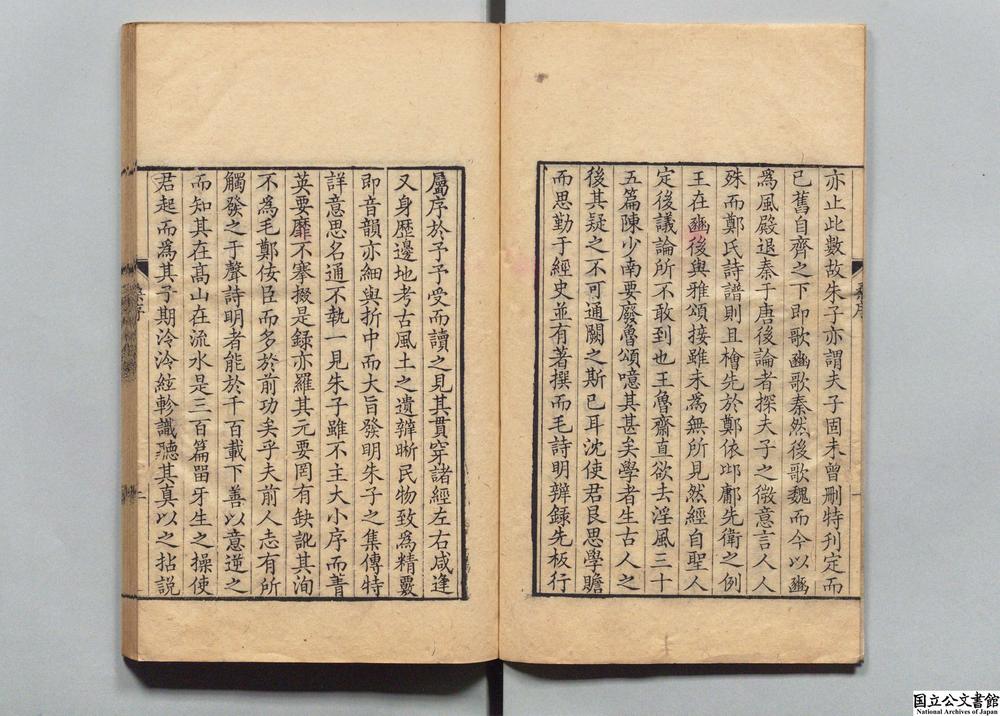 亦止此數故朱子亦謂夫子固未曾刪特刊定而
已舊自齊之下即歌豳歌秦然後歌魏而今以豳
爲風殿退秦于唐後論者探夫子之微意言人人
殊而鄭氏詩譜則且檜先於鄭依邶鄘先衛之例
王在豳後與雅頌接雖未爲無所見然經自聖人
定後議論所不敢到也王魯齋直欲去淫風三十
五篇陳少南要廢魯頌噫其甚矣學者生古人之
後其疑之不可通闕之斯已耳沈使君艮思學贍
而思勤于經史並有著撰而毛詩明辨録先板行
屬序於予予受而讀之見其貫穿諸經左右咸逢
又身歷邊地考古風土之遺辨晰民物致爲精覈
即音韻亦細與折中而大旨發明朱子之集傳特
詳意思名通不執一見朱子雖不主大小序而菁
英要靡不搴掇是録亦羅其元要罔有缺訛其洵
不爲毛鄭佞臣而多於前功矣乎夫前人志有所
觸發之于聲詩明者能於千百載下善以意逆之
而知其在髙山在流水是三百篇畱牙生之操使
君起而爲其子期泠泠絃軫讖聽其真以之拈説
桑序
二
国立公文書館
National Archives of Japan